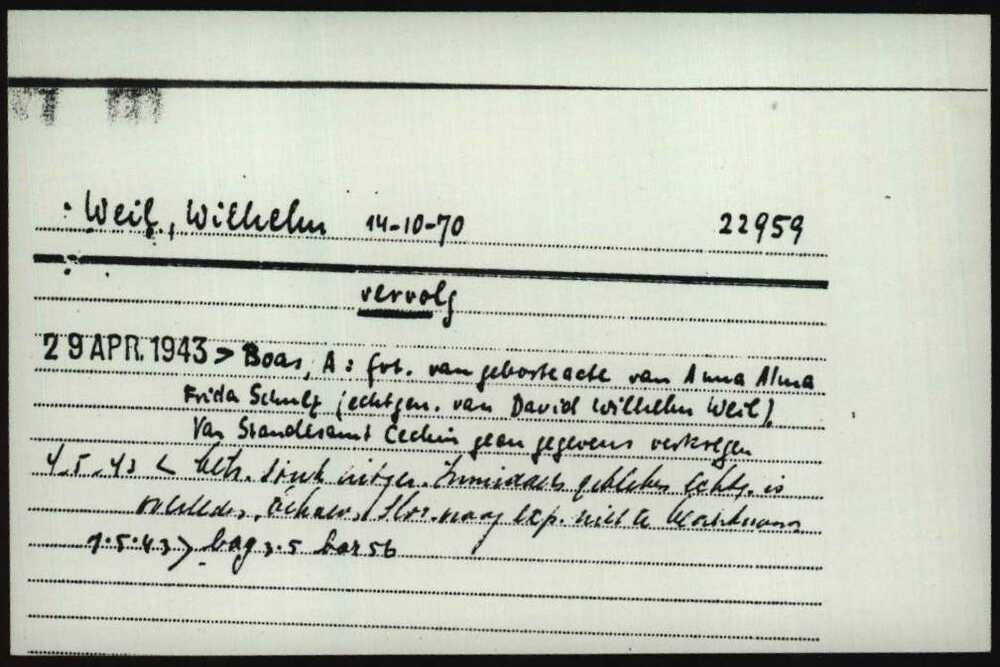 Weil, Wilhelm 14-10-70 22959
vervolg
29 APR. 1943 > Boas, A: fot. van geboorteacte van Anna Alma
Frida Schulz (echtgen. van David Wilhelm Weil).
Van Standesamt geen gegevens verkregen
4.5.43 < betr. stuk gebleken echtg. is
overleden,
7.5.43 > bag 3.5 bar 56